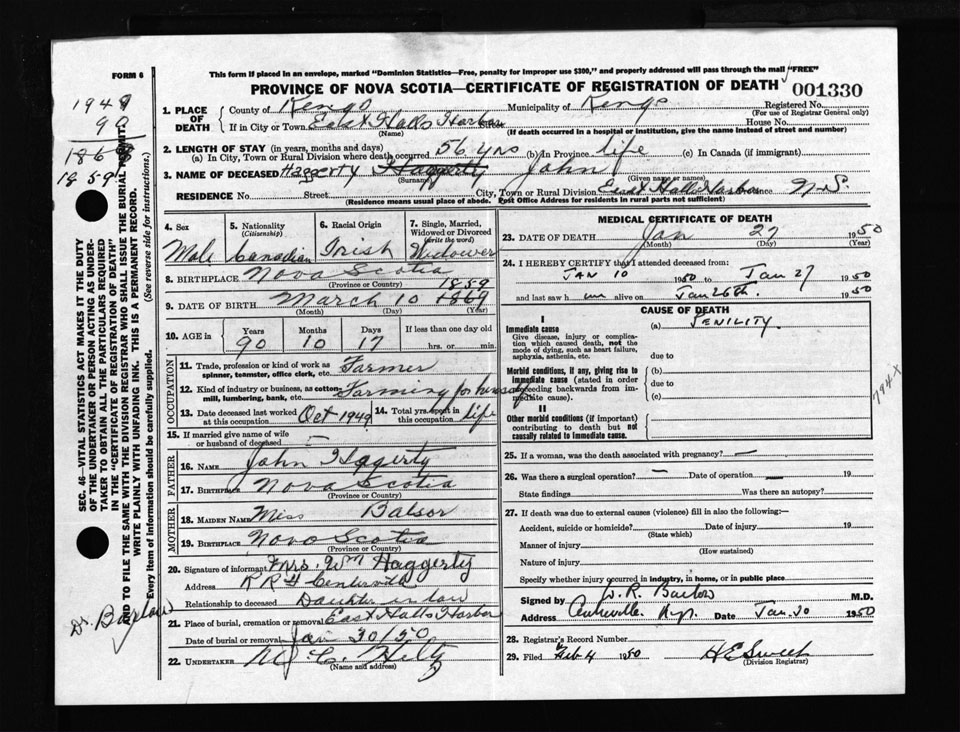 FORM 6
This form if placed in an envelope, marked "Dominion Statistics—Free, penalty for improper use $300," and properly addressed will pass through the mail "FREE"
PROVINCE OF NOVA SCOTIA—CERTIFICATE OF REGISTRATION OF DEATH
001330
1949
90
1868
1859
1. PLACE OF DEATH
County of Kings Municipality of Kings Registered No.
(For use of Registrar General only)
If in City or Town East Halls Harbor Street House No.
(Name) (If death occurred in a hospital or institution, give the name instead of street and number)
2. LENGTH OF STAY (in years, months and days)
(a) In City, Town or Rural Division where death occurred 56 yrs (b) In Province life (c) In Canada (if immigrant)
3. NAME OF DECEASED Haggerty Haggerty John
(Surname) (Given name or names)
RESIDENCE No. Street City, Town or Rural Division East Halls Harbor Province N.S.
(Residence means usual place of abode. Post Office Address for residents in rural parts not sufficient)
4. Sex
Male
5. Nationality
(Citizenship)
Canadian
6. Racial Origin
Irish
7. Single, Married, Widowed or Divorced
(write the word)
Widower
8. BIRTHPLACE Nova Scotia
(Province or Country)
1859
9. DATE OF BIRTH March 10 1869
(Month) (Day) (Year)
10. AGE in
Years Months Days If less than one day old
90 10 17 hrs. or min.
OCCUPATION
11. Trade, profession or kind of work as spinner, teamster, office clerk, etc. Farmer
12. Kind of industry or business, as cotton-mill, lumbering, bank, etc. Farming for himself
13. Date deceased last worked at this occupation Oct 1949 14. Total yrs. spent in this occupation life
15. If married give name of wife or husband of deceased —
FATHER
16. NAME John Haggerty
17. BIRTHPLACE Nova Scotia
(Province or Country)
MOTHER
18. MAIDEN NAME Miss Balsor
19. BIRTHPLACE Nova Scotia
(Province or Country)
20. Signature of informant Mrs. Wm Haggerty
Address R R 4 Centerville
Relationship to deceased Daughter in law
21. Place of burial, cremation or removal East Halls Harbor
Date of burial or removal Jan 30/50
22. UNDERTAKER M C. Hiltz
(Name and address)
MEDICAL CERTIFICATE OF DEATH
23. DATE OF DEATH Jan 27 1950
(Month) (Day) (Year)
24. I HEREBY CERTIFY that I attended deceased from:
JAN 10 1950 to Jan 27 1950
and last saw h im alive on Jan 26th. 1950
CAUSE OF DEATH
I
Immediate cause
Give disease, injury or complication which caused death, not the mode of dying, such as heart failure, asphyxia, asthenia, etc.
(a) SENILITY.
due to
Morbid conditions, if any, giving rise to immediate cause (stated in order proceeding backwards from immediate cause).
(b)
due to
(c)
II
Other morbid conditions (if important) contributing to death but not causally related to immediate cause.
794X
25. If a woman, was the death associated with pregnancy? —
26. Was there a surgical operation? — Date of operation — 19
State findings Was there an autopsy?
27. If death was due to external causes (violence) fill in also the following:—
Accident, suicide or homicide? Date of injury 19
(State which)
Manner of injury
(How sustained)
Nature of injury
Specify whether injury occurred in industry, in home, or in public place
Signed by W. R. Barlow M.D.
Address Centreville N.S. Date Jan. 30 1950
28. Registrar's Record Number
29. Filed Feb 4 1950 H E Sweet
(Division Registrar)
SEC. 46—VITAL STATISTICS ACT MAKES IT THE DUTY OF THE UNDERTAKER OR PERSON ACTING AS UNDERTAKER TO OBTAIN ALL THE PARTICULARS REQUIRED IN THE "CERTIFICATE OF REGISTRATION OF DEATH" AND TO FILE THE SAME WITH THE DIVISION REGISTRAR WHO SHALL ISSUE THE BURIAL PERMIT.
WRITE PLAINLY WITH UNFADING INK. THIS IS A PERMANENT RECORD.
Every item of information should be carefully supplied. (See reverse side for instructions.)
Dr. Barlow